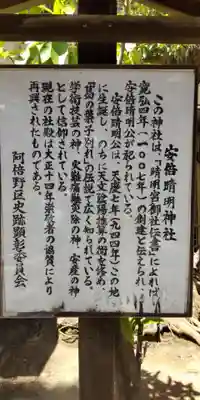 安倍晴明神社
この神社は、『晴明宮御社伝書』によれば
寛弘四年(一〇〇七年)の創建と伝えられ
安倍晴明公が祀られている。
安倍晴明公は、天慶七年(九四四年)この地
に生誕し、のちに天文陰陽推算の術を修め、
「葛の葉子別れ」の伝説で広く知られている。
学術技芸の神、災難病難災除の神、安産の神
として信仰されている。
現在の社殿は大正十四年崇敬者の協賛により
再興されたものである。
阿倍野区史跡顕彰委員会